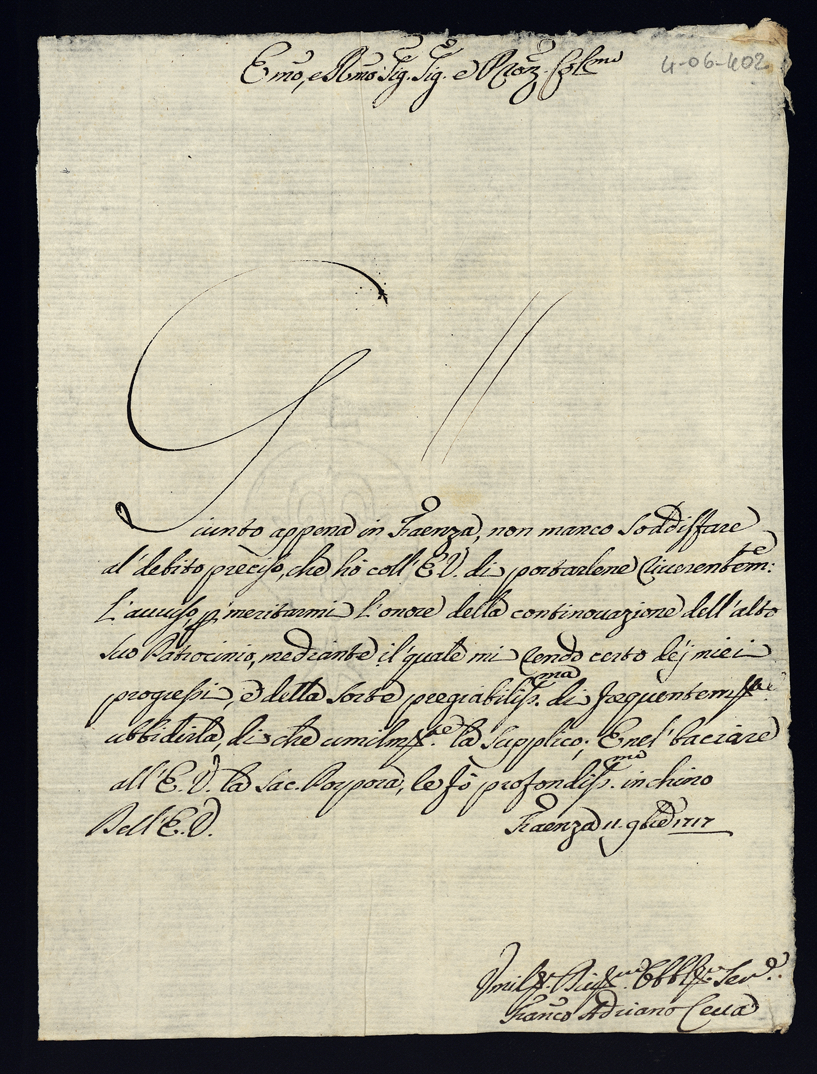 Emo, e Rmo Sig. Sig. e Pron. Colmo
4-06-402
Giunto appena in Faenza, non manco soddisfare
al debito preciso, che hò coll'E.V. di portarlene riverentemte:
l'avviso, p meritarmi l'onore della continovazione dell'alto
suo Patrocinio, mediante il quale mi rendo certo dej miei
progressi, e della sorte pregiabilissma di frequentem
ubbidirla, di che umilmte la supplico; E nel baciare
all'E.V. la Sac. Porpora, le fò profondissmo inchino
Dell'E.V.
Faenza 11. 9bre 1717
Umilmo Ser.
Franco Adriano Ceva